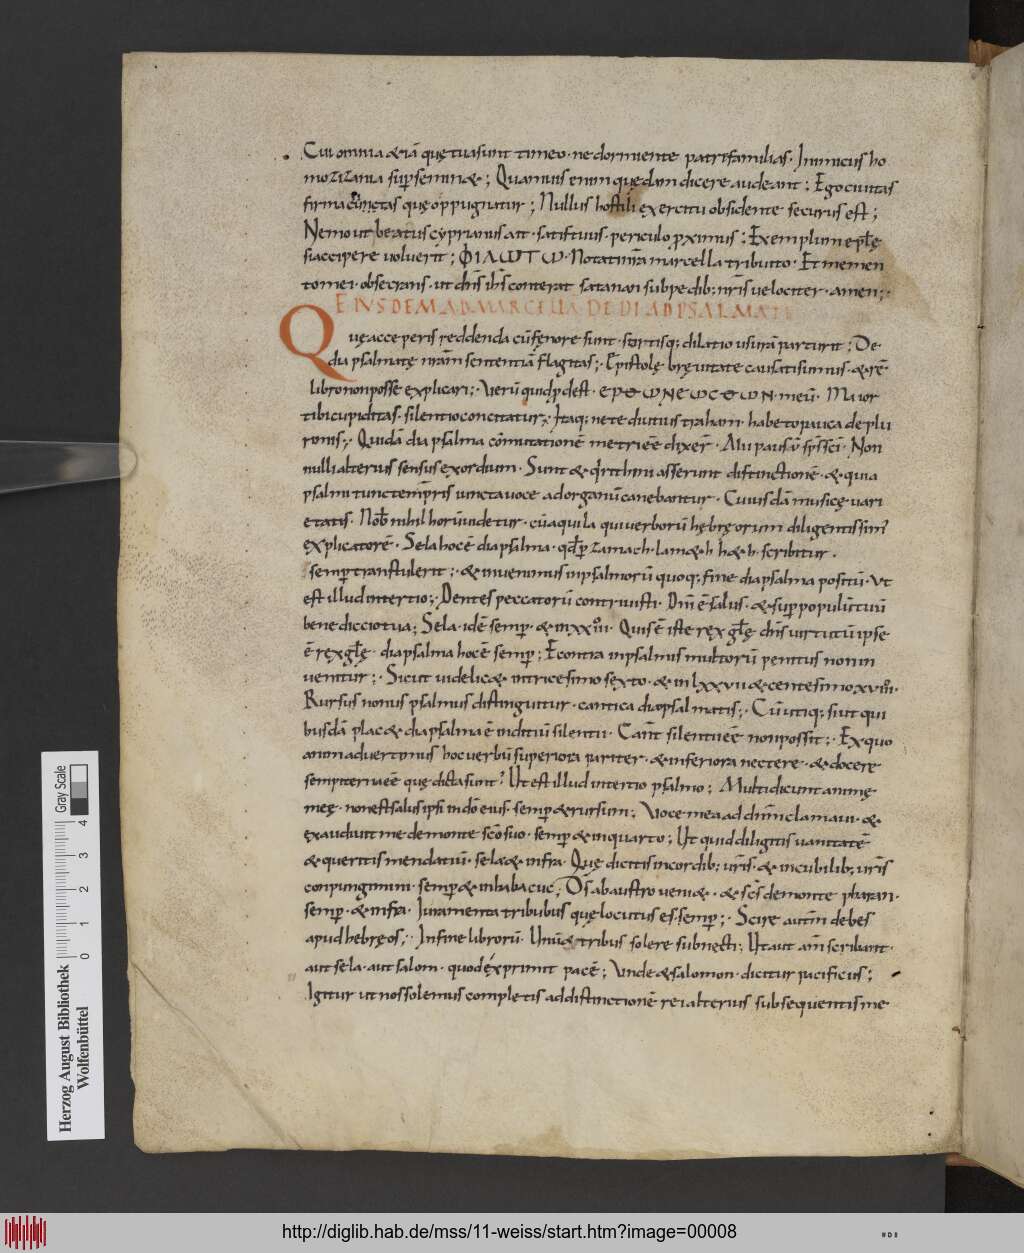 Cui omnia & iā quę tua sunt timeo · ne dormiente patrefamilias · Inimicus ho
mo zizania sup̄semin&; Quamuis enim quędam dicere audeant; Ego ciuitas
firma cunctas quę oppugnatur; Nullus hostili exercitu obsidente securus est;
Nemo ut beatus cyprianus ait · satis tuus · periculo proximus; Exemplum epl̄ę
si accipere uolueris; ΦΙΛѠΤΤѠ · Notatim̄ra marcella tribuito · Et memen
to mei · obsecrans · ut dn̄s ih̄s conterat satanan sub pedib; nr̄is uelociter · amen;·
EIUSDEM AD MARCELLA DE DIAPSALMATE
Quę acceperis reddenda cū fenore sunt · sortisq; dilatio usurā parturit; De
diapsalmatę nr̄am sententiā flagitas;· Epistolę breuitate causati sumus · & rē
libro non posse explicari;· Verū quid p̄dest · ЄΡΓѠΝЄѠCЄѠΝ · meū · Maior
tibi cupiditas · silentio concitatur;· Itaq; ne te diutius traham · habeto pauca de plu
rimis;· Quidā diapsalma cōmutationē metri eē dixer̄ · Alii pausā sp̄s sc̄i · Non
nulli alterius sensus exordium · Sunt & qi rithmi asserunt distinctionē · & quia
psalmi tunc temp̄ris iuncta uoce ad organū canebantur · Cuiusdā musicę vari
etatis · Nob̄ nihil horū uidetur · cū aquila qui uerborū hębręorum diligentissim'
explicatorē · Sela hoc ē diapsalma · qd̄ p̄ zamach · lam& · h h& · h · scribitur ·
semp̄ transtulerit;· & inuenimus in psalmorū quoq; fine diapsalma positū · Vt
est illud in tertio;· Dentes peccatorū contriuisti · Dn̄i ē salus · & sup̄ populū tuū
benedicctio tua; Sela · idē semp̄ · & in xxiii · Quis ē iste ręx gl̄ę dn̄s uirtutū ipse
ē ręx gl̄ę · diapsalma hoc ē semp̄; E contra in psalmis multorū penitus non in
uenitur;· Sicut uidelic& · in tricesimo sexto · & in lxxvii & centesimo xviii ·
Rursus nonus psalmus distinguitur · cantica diapsalmatis;· Cū utiq; si ut qui
busdā plac& diapsalma ē inditiū silentii · Cant̄ silentii eē non possit;· Ex quo
animaduertimus hoc uerbū superiora pariter · & inferiora nectere · & docere
sempiterna eē quę dicta sunt? Ut est illud in tertio psalmo; Multi dicunt animę
meę · non est salus ipsi in dō eius · semp̄ & rursum; Voce mea ad dn̄m clamaui · &
exaudiuit me de monte sc̄o suo · semp̄ & in quarto; Ut quid diligitis uanitatē
& queritis mendatiū · sela & infra · Quę dicitis in cordib; ur̄is · & in cubilib; ur̄is
conpungimini · semp̄ & in habacuc; D̄s ab austro ueni& · & sc̄s de monte pharan ·
semp̄ · & infra · Iuramenta tribubus quę locutus es · semp̄;· Scire autm̄ debes
apud hebręos;· In fine librorū · Unū & tribus solere subnecti; Ut aut am̄ scribant ·
aut sela · aut salom · quod exprimit pacē; Vnde & salomon · dicitur pacificus;
Igitur ut nos solemus completis ad distinctionē rei alterius subsequentis me
Gray Scale
0 1 2 3 4
Herzog August Bibliothek
Wolfenbüttel
http://diglib.hab.de/mss/11-weiss/start.htm?image=00008